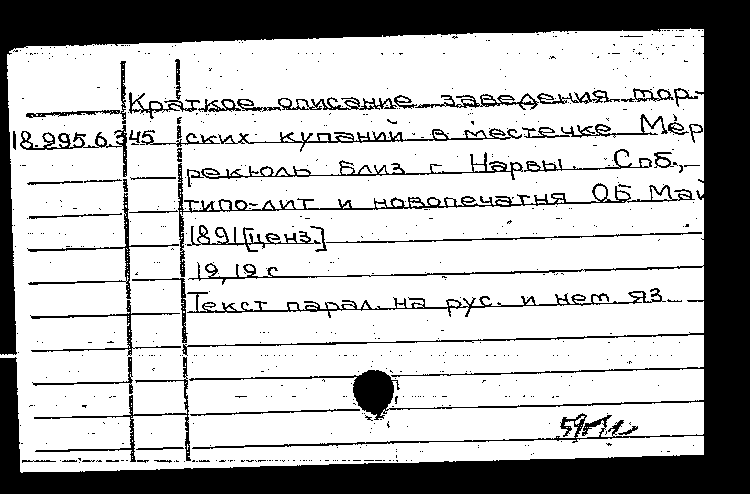 Краткое описание заведения мор-
18.295.6.345 ских купаний в местечке Мер-
рекюль близ г. Нарвы. Спб.,
типо-лит и новопечатня Об. Май
1891[ценз.]
19, 19 с
Текст парал. на рус. и нем. яз.